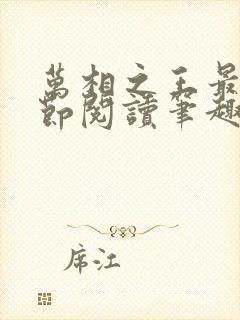 萬相之王最
節閱讀筆趣
席江